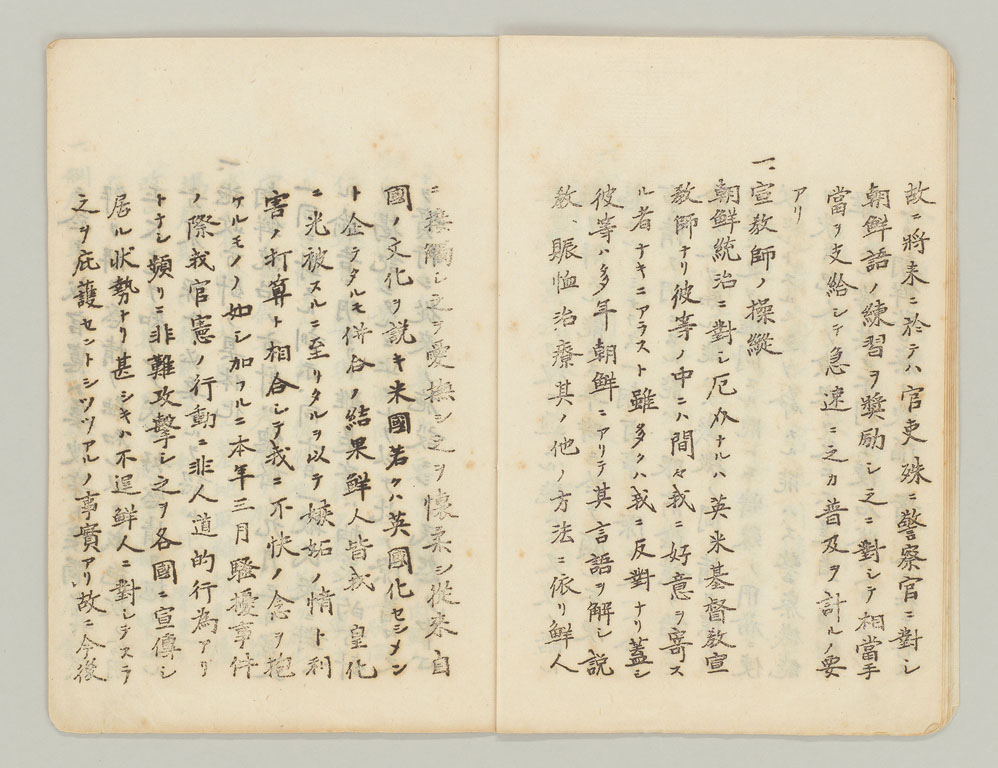 故ニ將来ニ於テハ官吏殊ニ警察官ニ對シ
朝鮮語ノ練習ヲ奬励シ之ニ對シテ相當手
當ヲ支給シテ急速ニ之カ普及ヲ計ルノ要
アリ
一、宣教師ノ操縱
朝鮮統治ニ對シ厄介ナルハ英米基督教宣
教師ナリ彼等ノ中ニハ間々我ニ好意ヲ寄ス
ル者ナキニアラスト雖多クハ我ニ反對ナリ蓋シ
彼等ハ多年朝鮮ニアリテ其言語ヲ解シ説
教、賑恤治療其ノ他ノ方法ニ依リ鮮人
ニ接觸シ之ヲ愛撫シ之ヲ懐柔シ従来自
國ノ文化ヲ説キ米國若クハ英國化セシメン
ト企ラタルモ併合ノ結果鮮人皆我 皇化
ニ光被スルニ至リタルヲ以テ嫉妬ノ情ト利
害ノ打算ト相合シテ我ニ不快ノ念ヲ抱
ケルモノノ如シ加フルニ本年三月騒擾事件
ノ際我官憲ノ行動ニ非人道的行為アリ
トナシ頻リニ非難攻撃シ之ヲ各國ニ宣傳シ
居ル状勢ナリ甚シキハ不逞鮮人ニ對シテスラ
之ヲ庇護セントシツツアルノ事實アリ、故ニ今後